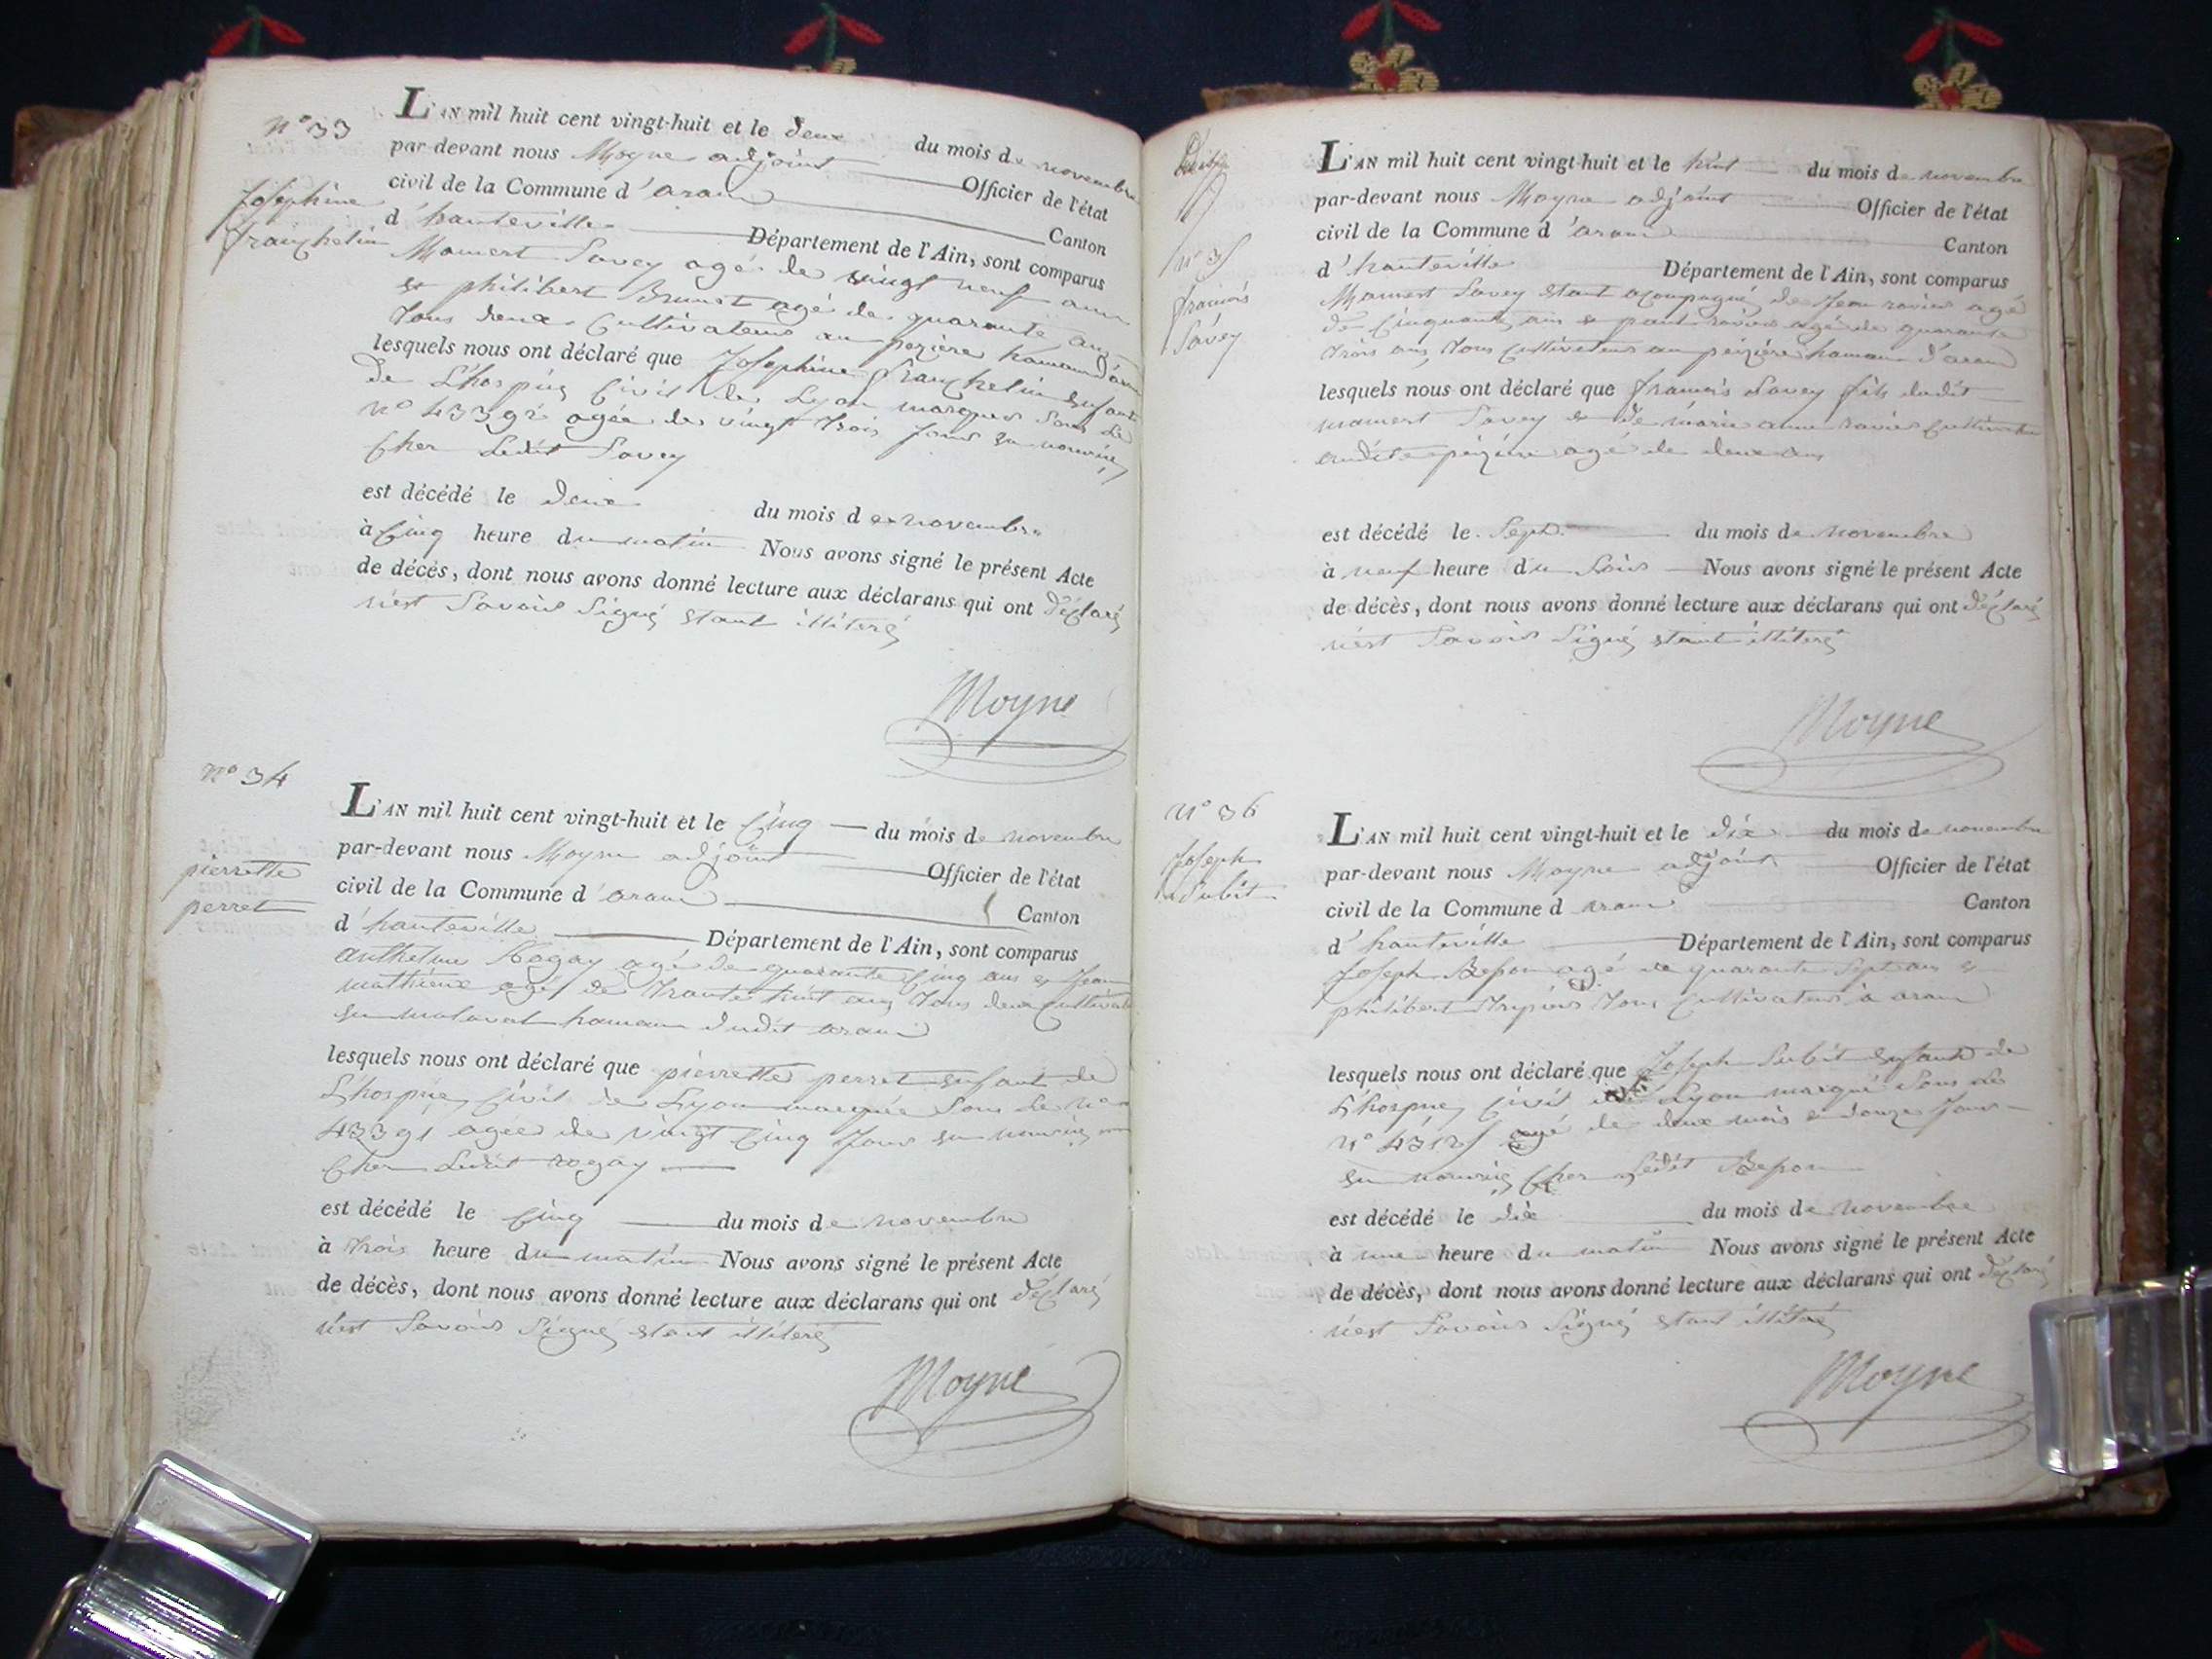 n° 33
Josephine
franchelin
L'AN mil huit cent vingt-huit et le deux du mois de novembre
par-devant nous Moyne adjoint Officier de l'état
civil de la Commune d'aran Canton
d'hauteville Département de l'Ain, sont comparus
Mamert Savey agé de vingt neuf ans
et philibert Brunet agé de quarante ans
tous deux Cultivateurs au pezière hameau d'aran
lesquels nous ont déclaré que Josephine franchelin enfant
de L'hospice Civil de Lyon marquée sous le
n° 43392 agée de vingt trois jours en nourrice
Cher Ledit Savey
est décédé le deux du mois de novembre
à Cinq heure du matin Nous avons signé le présent Acte
de décès, dont nous avons donné lecture aux déclarans qui ont déclaré
n'est Savoir Signé etant illiteré
Moyne
n° 34
pierrette
perret
L'AN mil huit cent vingt-huit et le Cinq du mois de novembre
par-devant nous Moyne adjoint Officier de l'état
civil de la Commune d'aran Canton
d'hauteville Département de l'Ain, sont comparus
anthelme Rogay agé de quarante Cinq ans et Jean
mathieux agé de trante huit ans tous deux Cultivat
en malaval hameau dudit aran
lesquels nous ont déclaré que pierrette perret enfant de
L'hospice Civil de Lyon marquée sous le n°
43391 agée de vingt Cinq Jours en nourrice
Cher Ledit rogay
est décédé le Cinq du mois de novembre
à trois heure du matin Nous avons signé le présent Acte
de décès, dont nous avons donné lecture aux déclarans qui ont déclaré
n'est Savoir Signé etant illiteré
Moyne
n° 35
francois
Savey
L'AN mil huit cent vingt-huit et le huit du mois de novembre
par-devant nous Moyne adjoint Officier de l'état
civil de la Commune d'aran Canton
d'hauteville Département de l'Ain, sont comparus
Mamert Savey etant acompagné de Jean ravier agé
de Cinquante ans et paul ravier agé de quarante
trois ans tous Cultivateurs au peizière hameau d'aran
lesquels nous ont déclaré que francois Savey fils dudit
mamert Savey et de marie anne ravier Cultivateur
audite peizière agé de deux ans
est décédé le Sept du mois de novembre
à neuf heure du Soir Nous avons signé le présent Acte
de décès, dont nous avons donné lecture aux déclarans qui ont déclaré
n'est Savoir Signé etant illiteré
Moyne
n° 36
Joseph
Subit
L'AN mil huit cent vingt-huit et le dix du mois de novembre
par-devant nous Moyne adjoint Officier de l'état
civil de la Commune d aran Canton
d'hauteville Département de l'Ain, sont comparus
Joseph Bepon agé de quarante Sept ans et
philibert tous Cultivateurs à aran
lesquels nous ont déclaré que Joseph Subit enfant de
L'hospice Civil de Lyon marqué sous le
n° agé de deux mois et douze Jours
en nourrice Cher Ledit Bepon
est décédé le dix du mois de novembre
à une heure du matin Nous avons signé le présent Acte
de décès, dont nous avons donné lecture aux déclarans qui ont déclaré
n'est Savoir Signé etant illiteré
Moyne